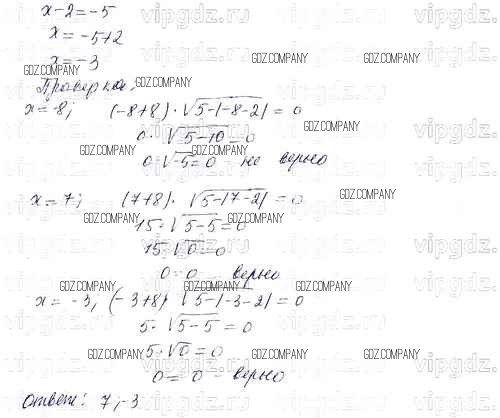 x-2=-5
x=-5+2
x=-3
Проверка:
x=-8; (-8+8)·√5-|-8-2| = 0
0·√5-10 = 0
0·√-5 = 0 - не верно
x=7; (7+8)·√5-|7-2| = 0
15·√5-5 = 0
15·√0 = 0
0=0 - верно
x=-3; (-3+8)·√5-|-3-2| = 0
5·√5-5 = 0
5·√0 = 0
0=0 - верно
Ответ: 7; -3